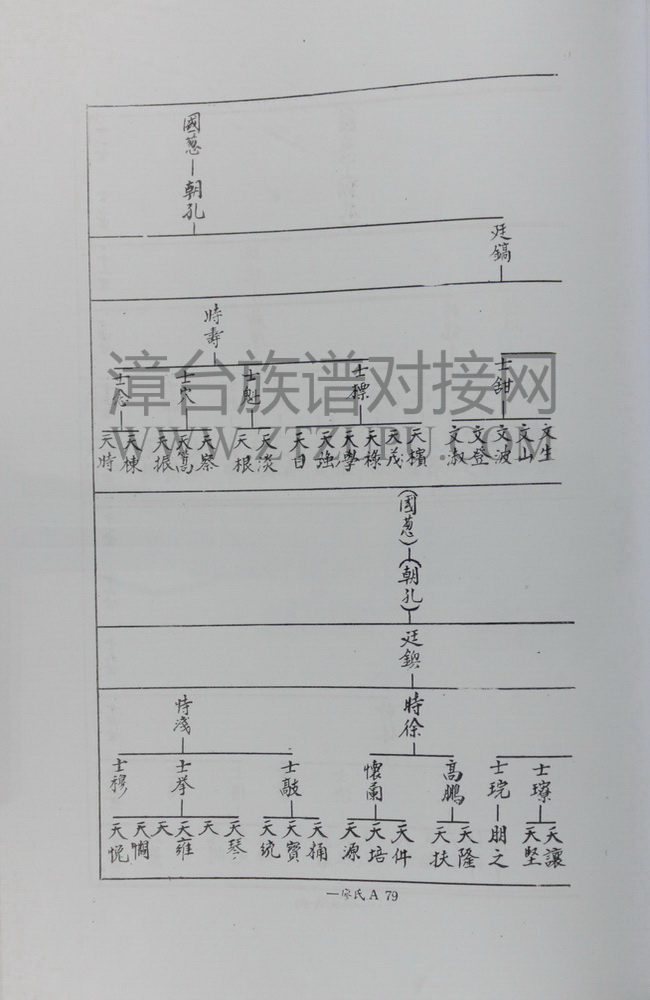 國蔥—朝孔
廷鎬
時壽
士甜
士標
士魁
士穴
士念
文生
文山
文波
文登
文淑
天檳
天茂
天祿
天學
天強
天日
天淡
天根
天察
天篙
天振
天棟
天時
(國蔥)—(朝孔)
廷鍥
時徐
時淺
士璙
士琓
高鵬
懷蘭
士敲
士拳
士穆
天讓
天堅
朋之
天隆
天扶
天件
天培
天源
天桶
天寶
天統
天琴
天
天雍
天
天憫
天
—廖氏 A 79
漳台族谱对接网
WWW.ZTZUPU